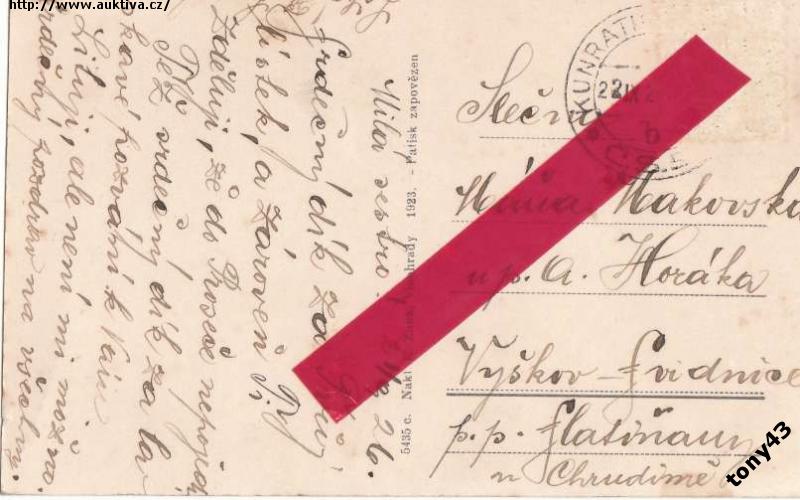 http://www.auktiva.cz/
Milá sestro!
Srdečný dík za
lístek, a zároveň Ti
sděluji, že do Proseče nepojedu
Též srdečný dík za las-
kavé pozvání k Vám
Lituji, ale není mi možno.
Srdečný pozdrav na všechny.
5435 c. Nakl. Vinohrady 1923. - Patisk zapovězen
KUNRATI
22 IX 2
b
Slečna
Máňa Makovská
u p. A. Horáka
Vyškov-Svidnice
p. p. Slatiňany
u Chrudimě
tony43